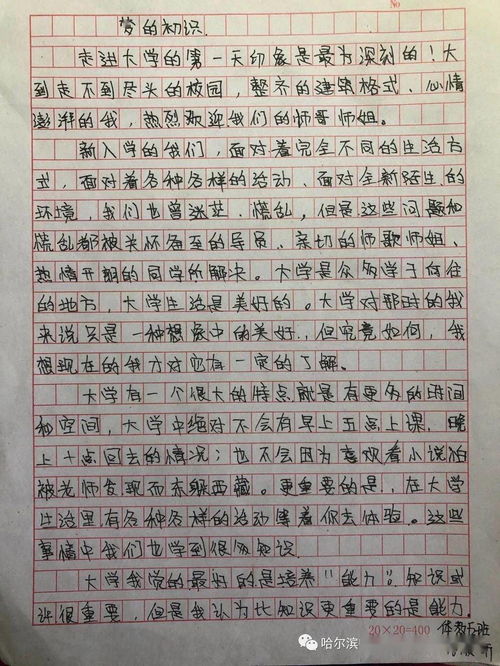 No
梦的初识.
走进大学的第一天印象是最为深刻的！大
到走不到尽头的校园，整齐的建筑格式、心情
澎湃的我，热烈欢迎我们的师哥师姐。
新入学的我们，面对着完全不同的生活方
式，面对着各种各样的活动、面对全新陌生的
环境，我们也曾迷茫、慌乱，但是这些问题和
慌乱都被关怀备至的导员、亲切的师歌师姐、
热情开朗的同学所解决。大学是众多学子向往
的地方，大学生活是美好的。大学对那时的我
来说只是一种想象中的美好，但究竟如何，我
想现在的我才对它有一定的了解。
大学有一个很大的特点就是有更多的时间
和空间，大学中绝对不会有早上五点上课，晚
上十点回去的情况；也不会因为喜欢看小说怕
被老师发现而东躲西藏。更重要的是，在大学
生活里有各种各样的活动等着你去体验。这些
事情中我们也学到很多知识.
大学我觉的最好的是培养“能力”.知识或
许很重要，但是我认为比知识更重要的是能力.
20×20=400 体教5班
哈尔滨